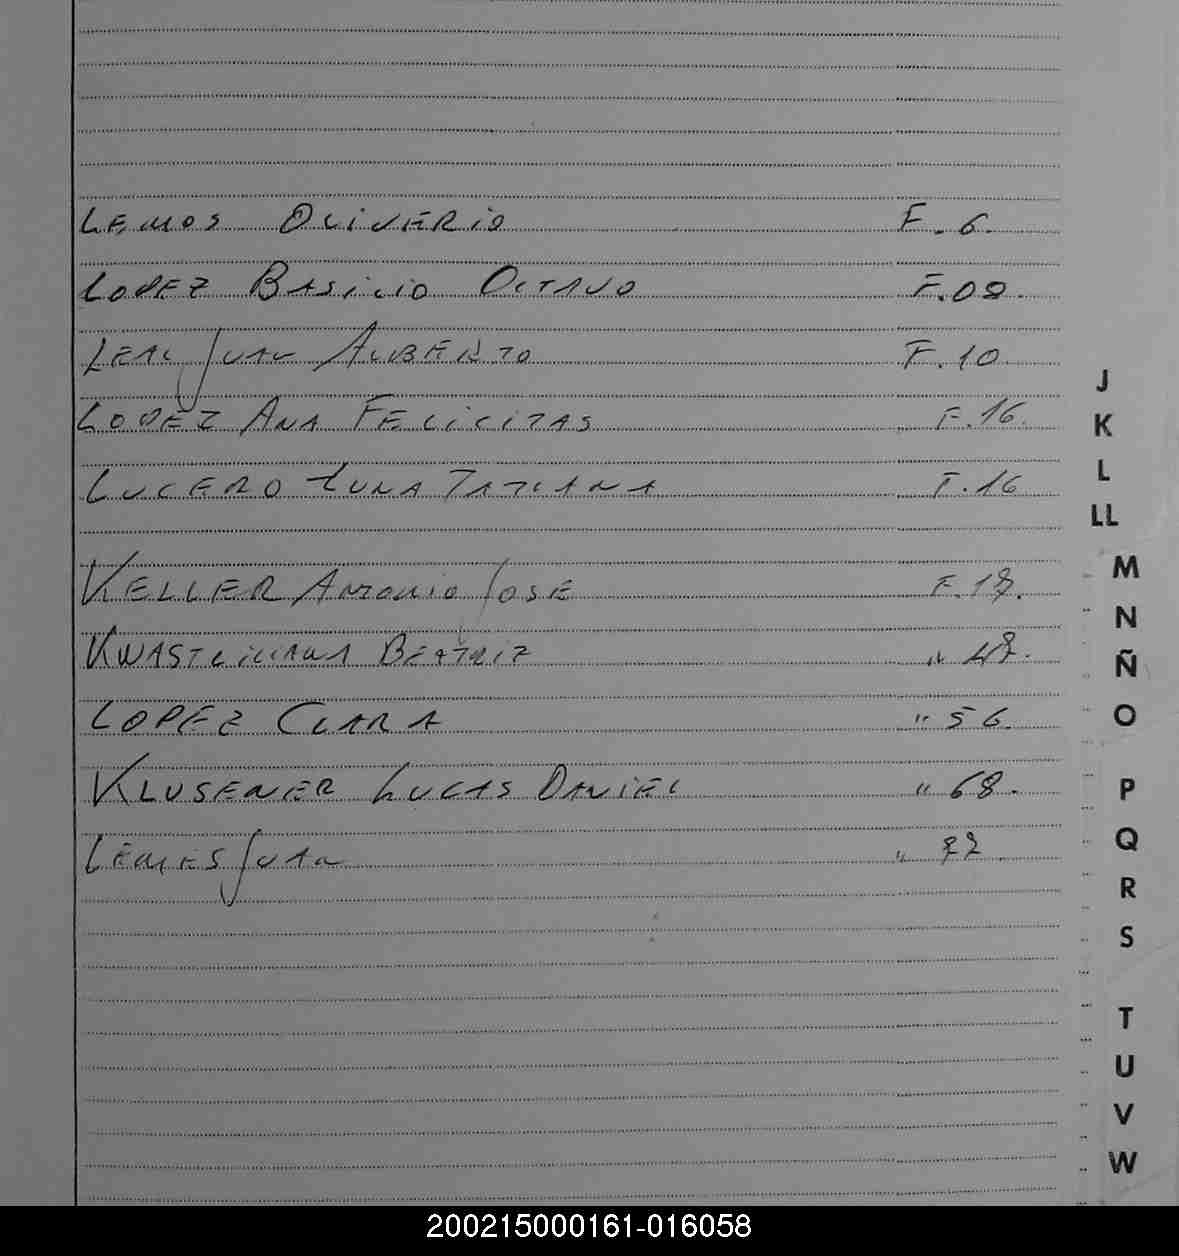 LEMOS OLIVERIO F. 6.
LOPEZ BASILIO OCTAVO F. 08.
LEAL JUAN ALBERTO F. 10
LOPEZ ANA FELICITAS F. 16.
LUCERO LUNA TATIANA F. 16
KELLER ANTONIO JOSE
BEATRIZ
LOPEZ CLARA " 56.
KLUSENER LUCAS DANIEL " 68.
LEMES JUAN "
J
K
L
LL
M
N
Ñ
O
P
Q
R
S
T
U
V
W
200215000161-016058